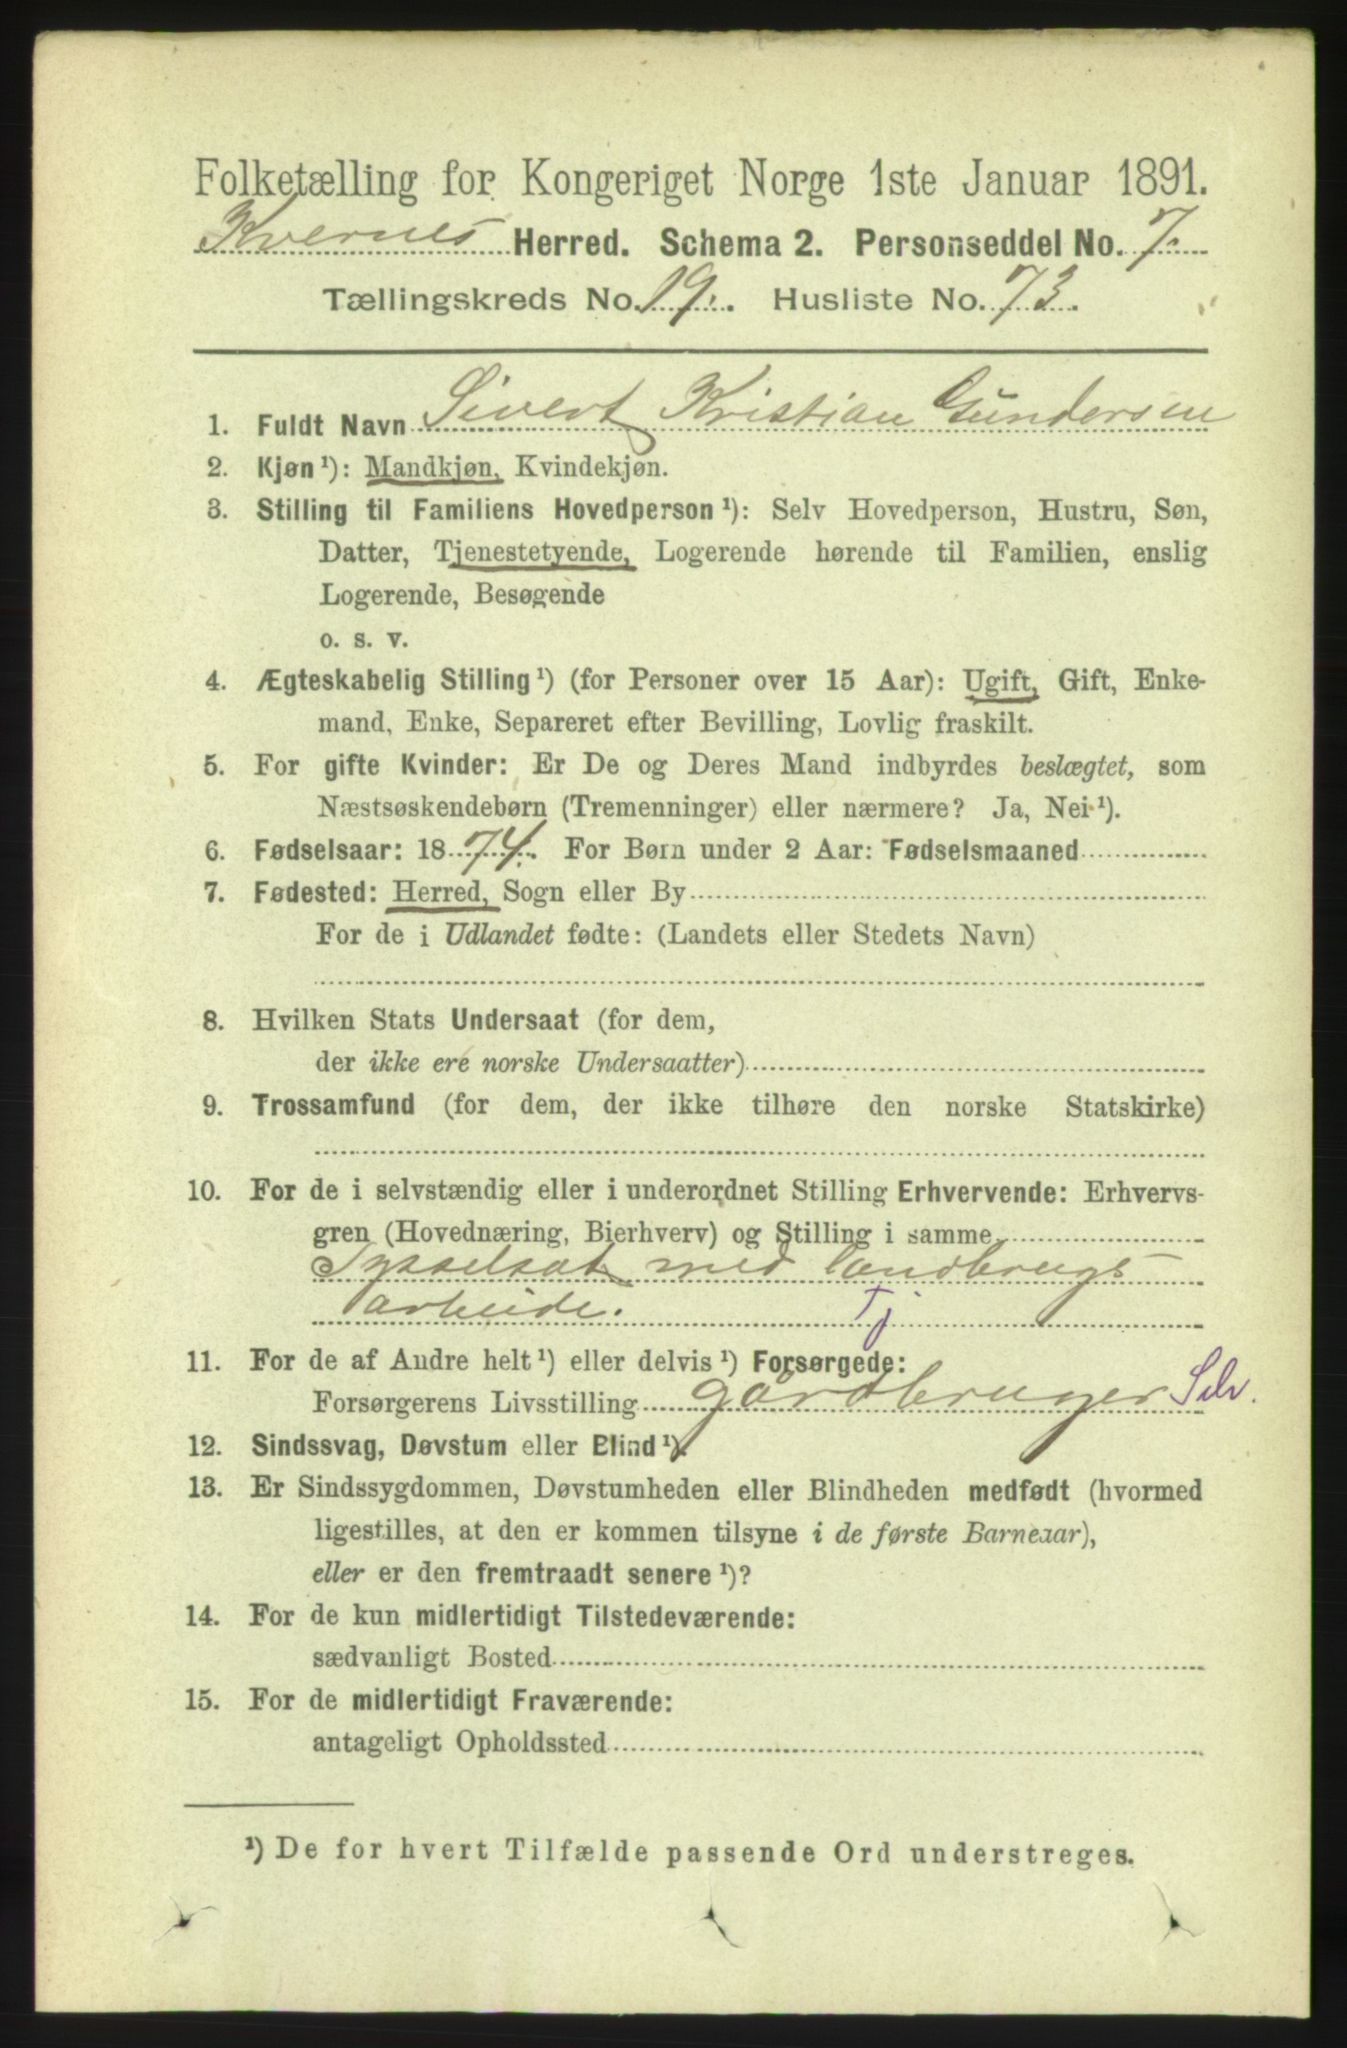 Folketælling for Kongeriget Norge 1ste Januar 1891.
Kvernes Herred. Schema 2. Personseddel No. 7.
Tællingskreds No. 19. Husliste No. 73.
1. Fuldt Navn Sivert Kristian Gundersen
2. Kjøn¹): Mandkjøn, Kvindekjøn.
3. Stilling til Familiens Hovedperson¹): Selv Hovedperson, Hustru, Søn,
Datter, Tjenestetyende, Logerende hørende til Familien, enslig
Logerende, Besøgende
o. s. v.
4. Ægteskabelig Stilling¹) (for Personer over 15 Aar): Ugift, Gift, Enke-
mand, Enke, Separeret efter Bevilling, Lovlig fraskilt.
5. For gifte Kvinder: Er De og Deres Mand indbyrdes beslægtet, som
Næstsøskendebørn (Tremenninger) eller nærmere? Ja, Nei¹).
6. Fødselsaar: 1874. For Børn under 2 Aar: Fødselsmaaned
7. Fødested: Herred, Sogn eller By
For de i Udlandet fødte: (Landets eller Stedets Navn)
8. Hvilken Stats Undersaat (for dem,
der ikke ere norske Undersaatter)
9. Trossamfund (for dem, der ikke tilhøre den norske Statskirke)
10. For de i selvstændig eller i underordnet Stilling Erhvervende: Erhvervs-
gren (Hovednæring, Bierhverv) og Stilling i samme
Sysselsat med landbrugs
arbeide. Tj
11. For de af Andre helt¹) eller delvis¹) Forsørgede:
Forsørgerens Livsstilling gårdbruger Selv.
12. Sindssvag, Døvstum eller Blind¹).
13. Er Sindssygdommen, Døvstumheden eller Blindheden medfødt (hvormed
ligestilles, at den er kommen tilsyne i de første Barneaar),
eller er den fremtraadt senere¹)?
14. For de kun midlertidigt Tilstedeværende:
sædvanligt Bosted
15. For de midlertidigt Fraværende:
antageligt Opholdssted
¹) De for hvert Tilfælde passende Ord understreges.